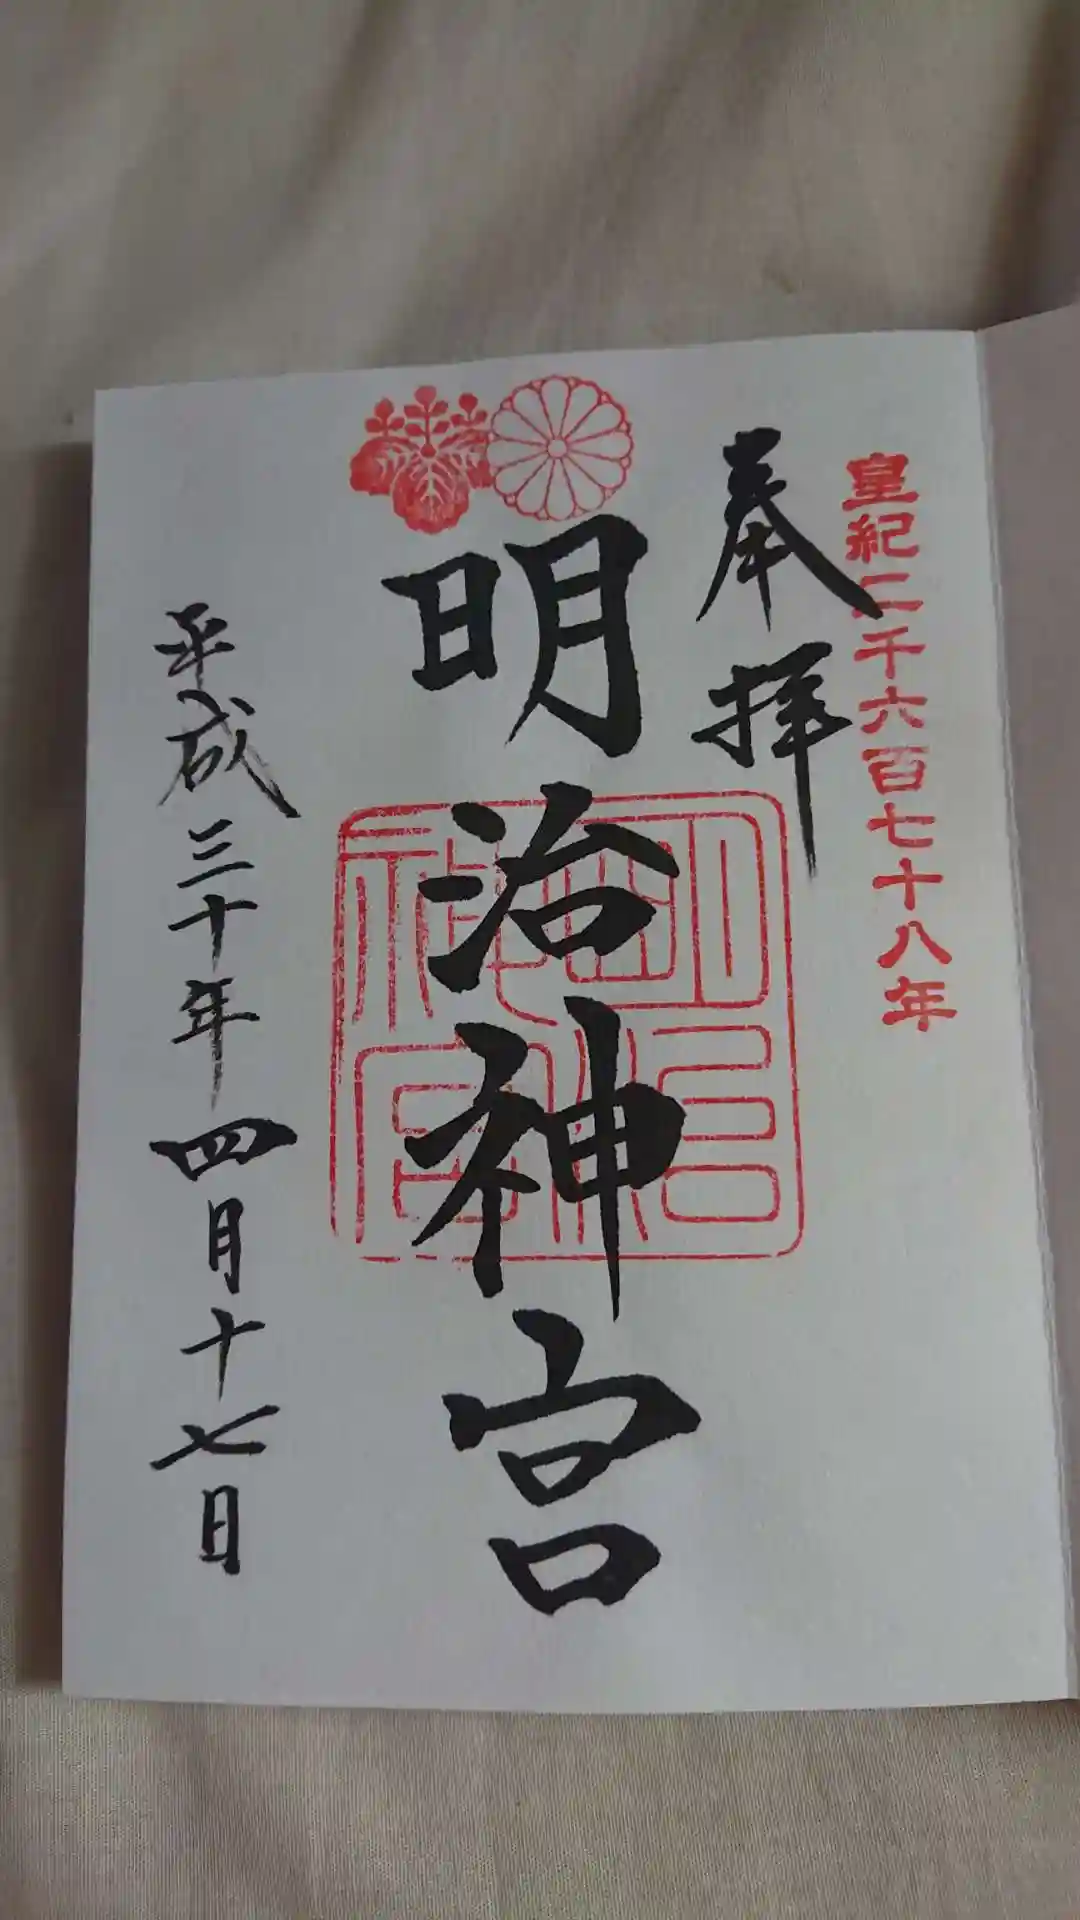 皇紀二千六百七十八年
奉拝
明治神宮
明治神宮
平成三十年四月十七日